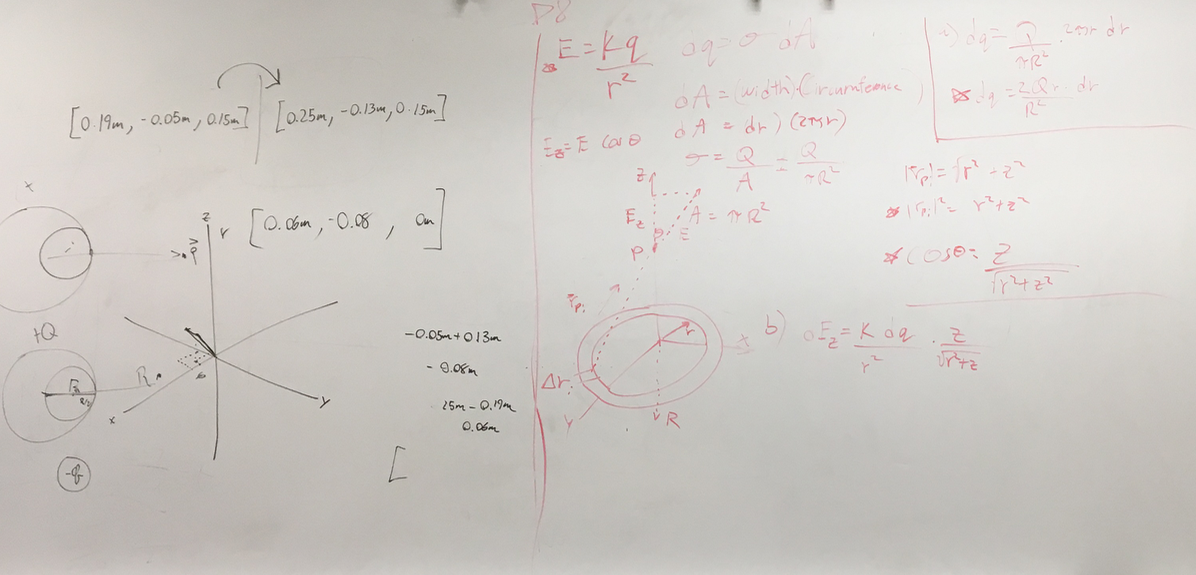 [0.19m, -0.05m, 0.15m] [0.25m, -0.13m, 0.15m]
[0.06m, -0.08 , 0m]
x
z
r
P
+Q
R
x
y
-q
-0.05m+013m
- 0.08m
25m - 0.19m
0.06m
[
P8
E = Kq / r²
dq = σ dA
dA = (width)·(Circumfemance)
Ez = E cos θ
dA = dr) (2πr)
σ = Q/A = Q/πR²
A = πR²
z
Ez
θ
E
P
r
Δr
x
y
R
a) dq = 2πr dr
πR²
dq = 2Qr dr / R²
|rp| = √r² - z²
|rp|² = r²+z²
cosθ = z / √r²+z²
b) dEz = K dq / r² · z / √r²+z